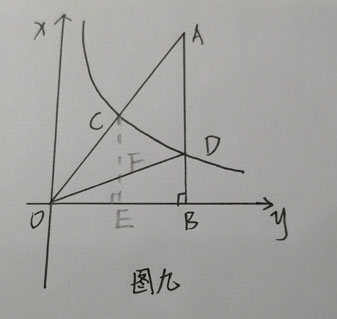 x
A
C
D
F
O
E
B
y
图九